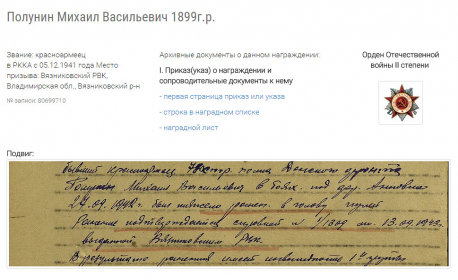 Полунин Михаил Васильевич 1899г.р.
Звание: красноармеец
в РККА с 05.12.1941 года Место
призыва: Вязниковский РВК,
Владимирская обл., Вязниковский р-н
№ записи: 80699710
Архивные документы о данном награждении:
I. Приказ(указ) о награждении и
сопроводительные документы к нему
- первая страница приказ или указа
- строка в наградном списке
- наградной лист
Орден Отечественной
войны II степени
Подвиг:
бывший красноармеец полка Донского фронта
Полунин Михаил Васильевич в боях под дер.
24.09.1942 был тяжело ранен в голову
Ранение подтверждается справкой от 13.09.
выданной Вязниковским РВК.
В результате ранения имеет инвалидность группы